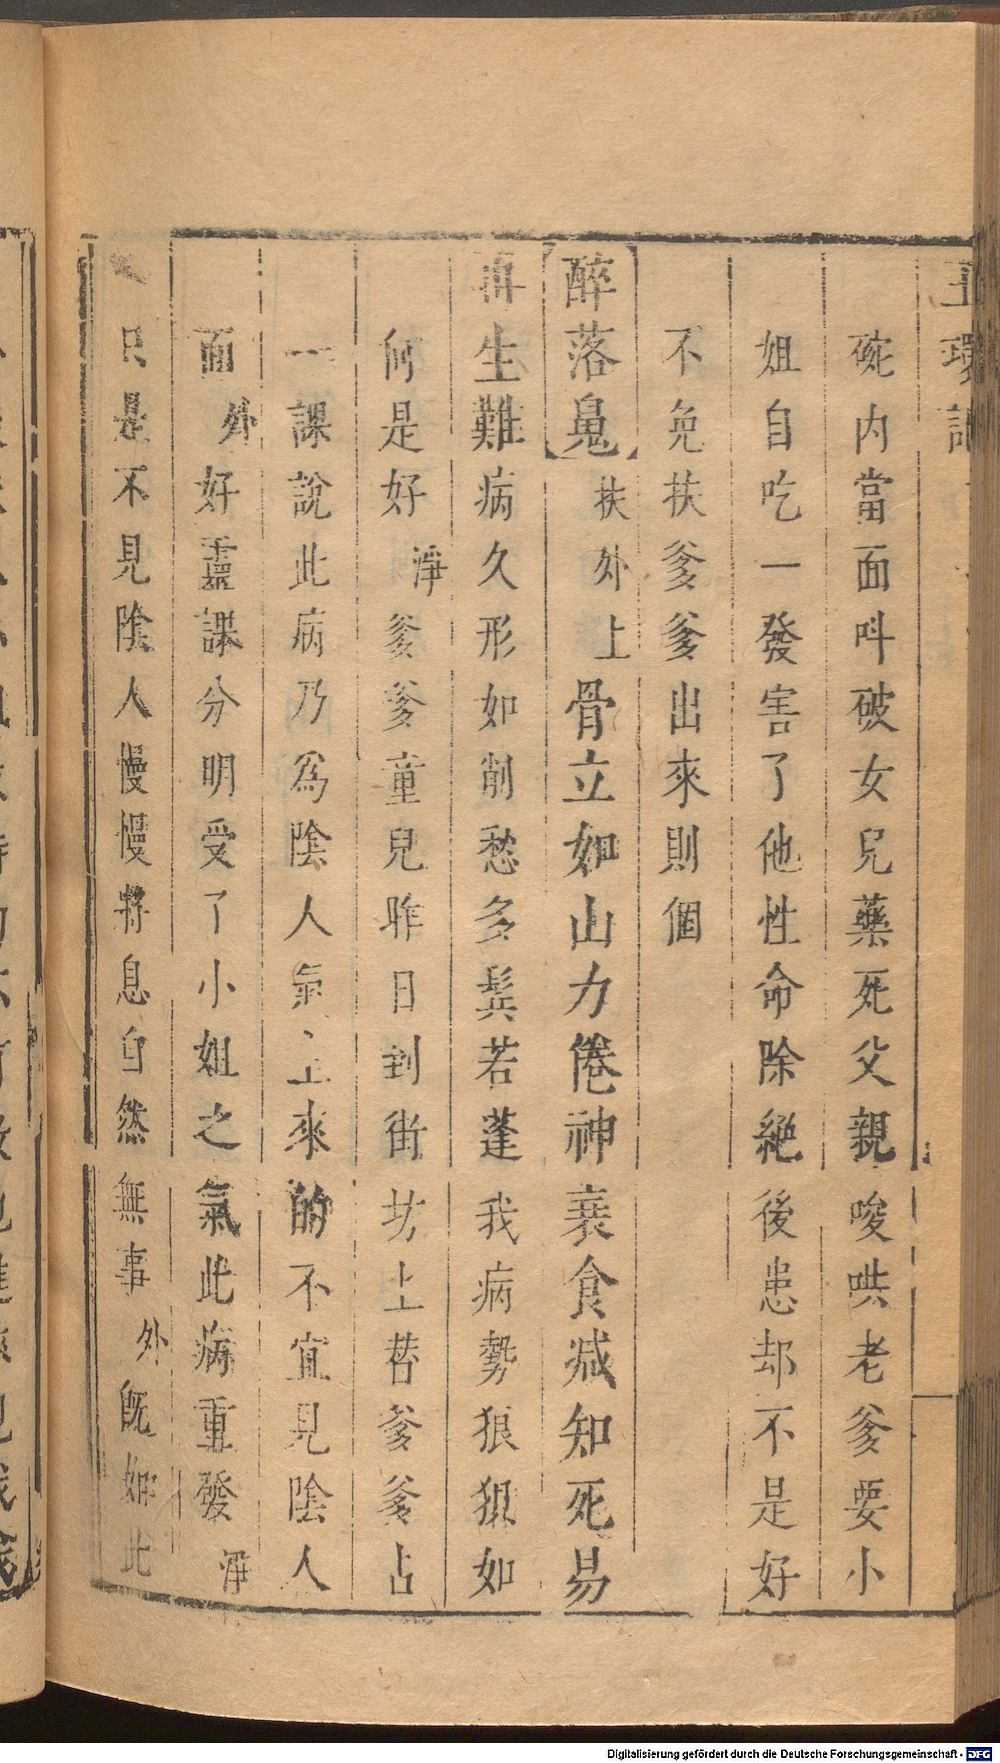 玉環記
碗內當面呌破女兒藥死父親唆哄老爹要小
姐自吃一發害了他性命除絕後患却不是好
不免扶爹爹出來則個
醉落鳬扶外上骨立如山力倦神衰食减知死易
再生難病久形如削愁多鬂若蓬我病勢狼狽如
何是好淨爹爹童兒昨日到街坊上替爹爹占
一課說此病乃爲陰人氣上來的不宜見陰人
面外好靈課分明受了小姐之氣此病重發淨
只是不見陰人慢慢將息自然無事外旣如此
Digitalisierung gefördert durch die Deutsche Forschungsgemeinschaft - DFG